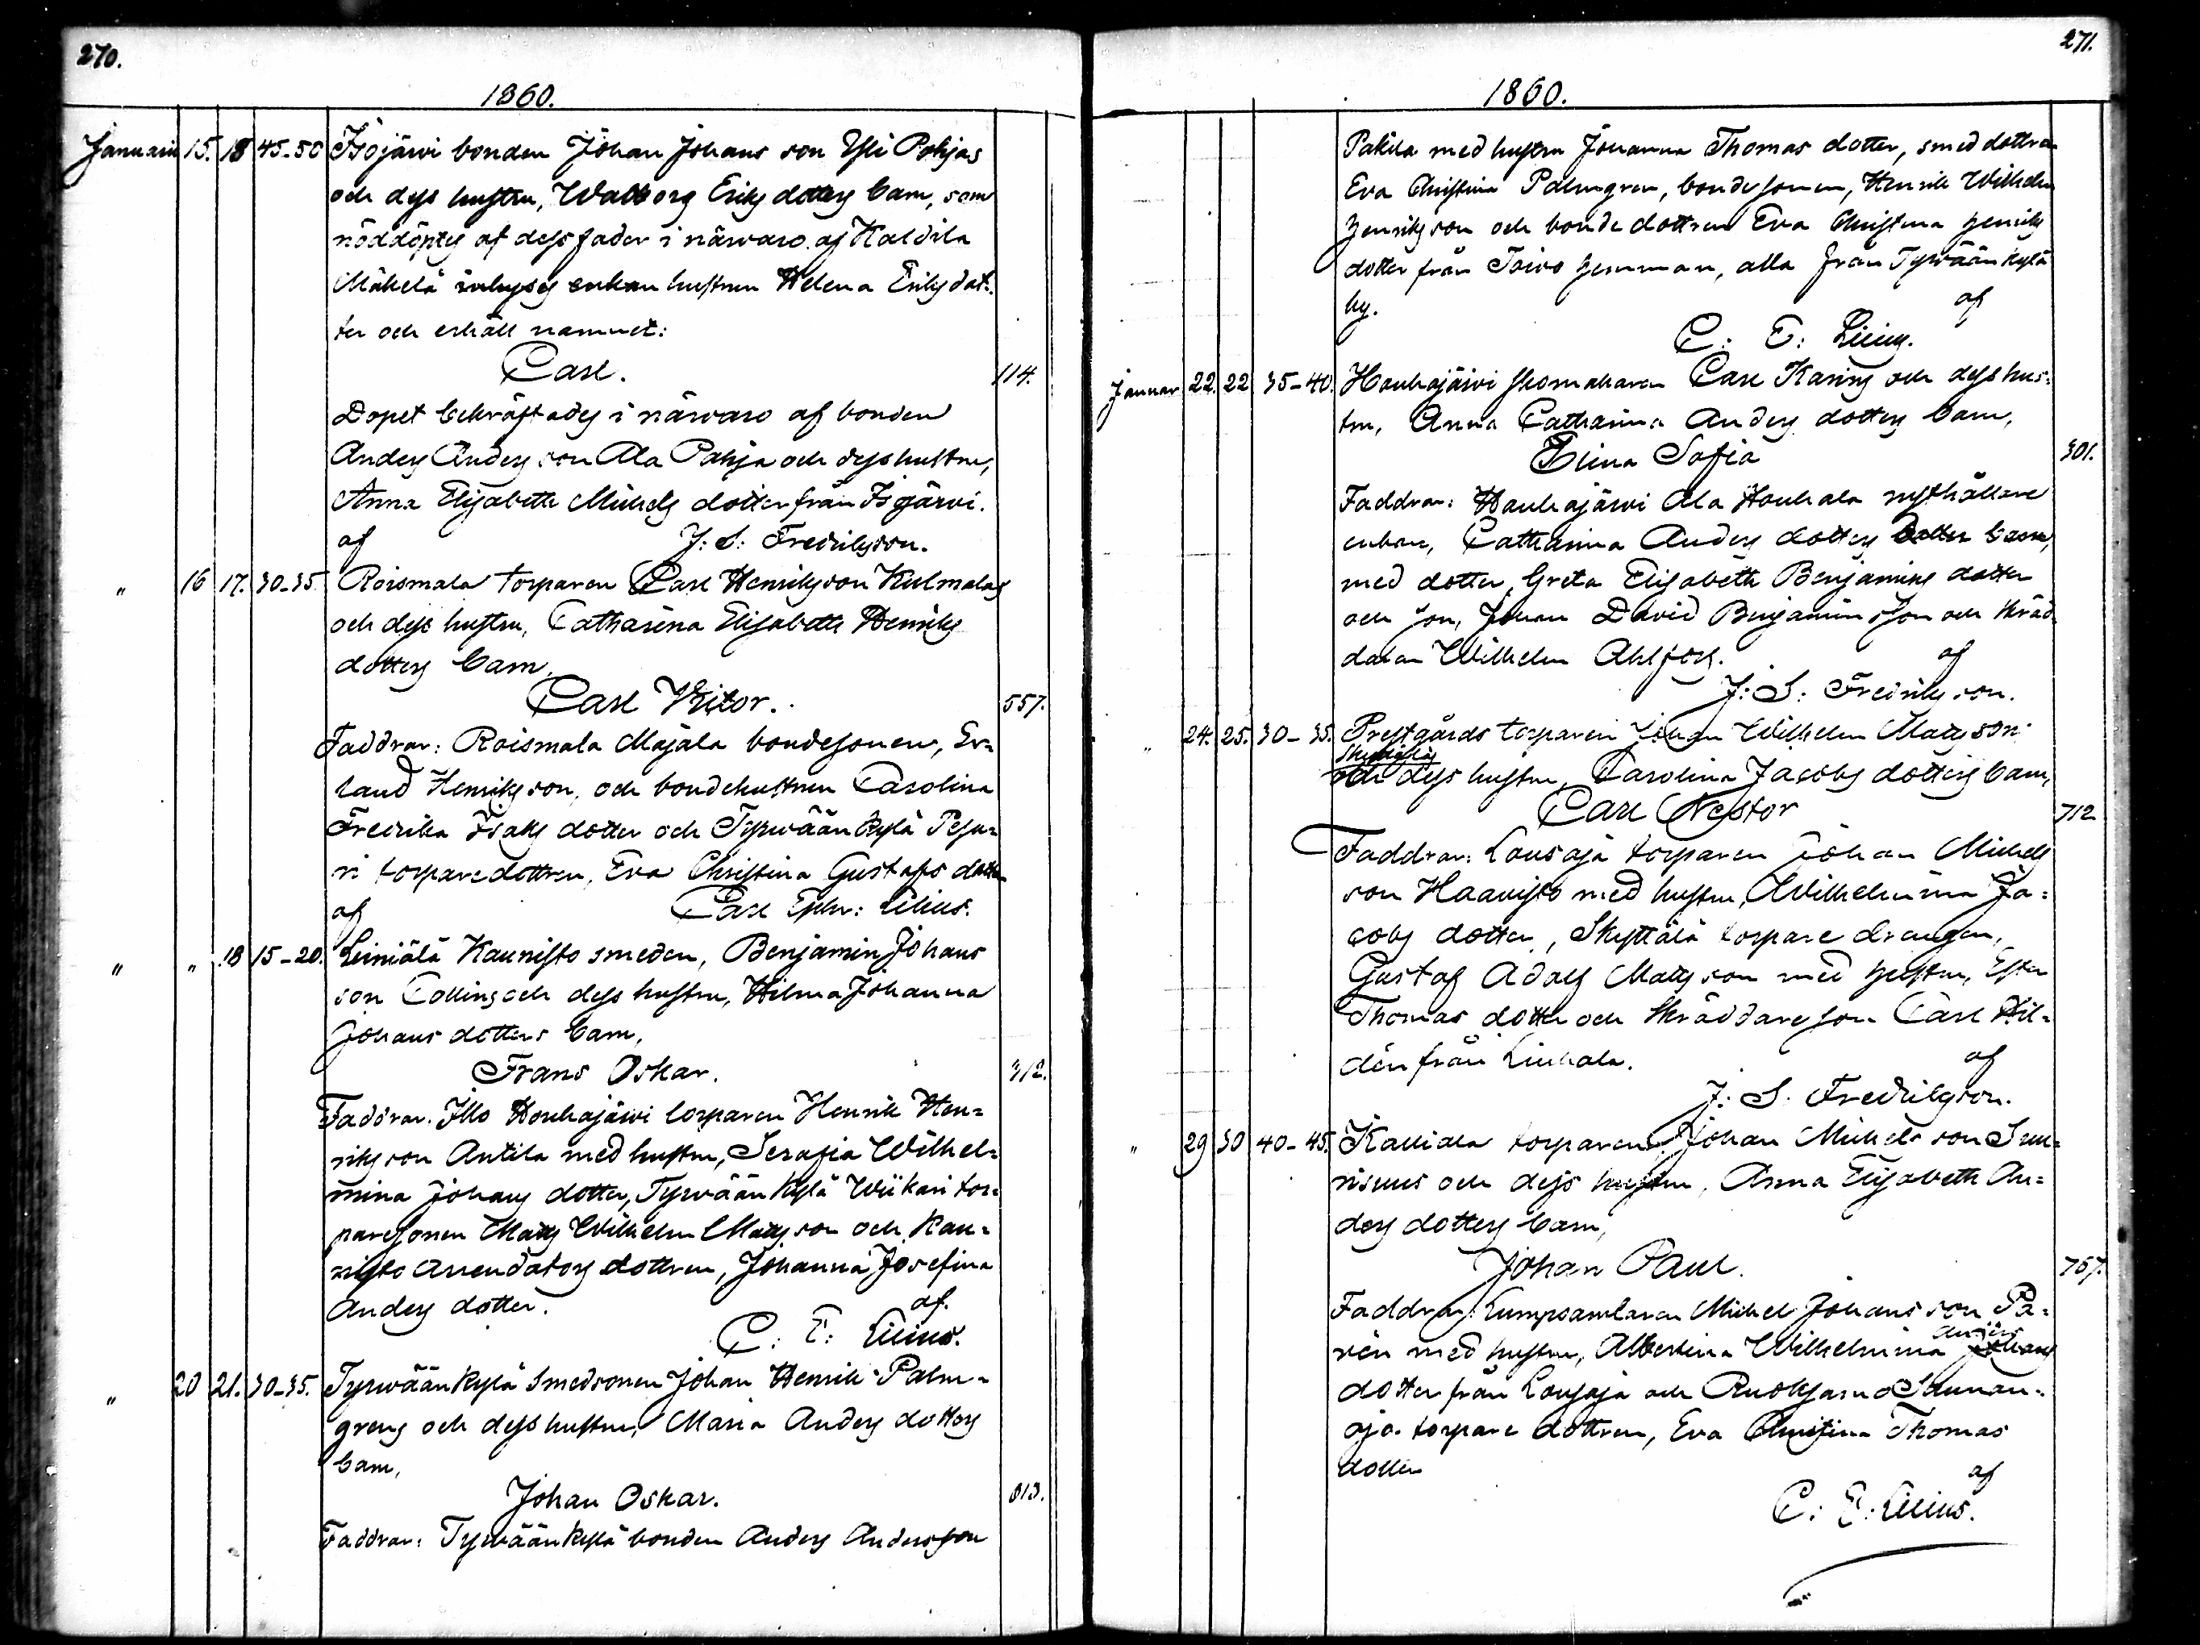 270.
1860.
Januarii 15. 18 45-50 Isojärvi bonden Johan Johans son Yli Pohjas
och dess hustru, Walborg Eriks dotters barn, som
nöddöptes af dess fader i närvaro af Kaldila
Mäkelä inhyses enkan hustrun Helena Eriks dot-
ter och erhöll namnet:
Carl. 114.
Dopet bekräftades i närvaro af bonden
Anders Anders son Ala Pohja och dess hustru,
Anna Elisabeth Michels dotter från Isojärvi.
af J: S: Fredriksson.
" 16 17. 30-35 Roismala torparen Carl Henriksson Kulmalas
och dess hustru, Catharina Elisabeth Henriks
dotters barn,
Carl Victor. 557.
Faddrar: Roismala Majala bondesonen, Er=
land Henriksson, och bondehustrun Carolina
Fredrika Isaks dotter och Tyrväänkylä Pesu=
ri torparedottren, Eva Christina Gustafs dotter
af Carl Ephr: Lilius.
" " 18 15-20. Leiniälä Kaunisto smeden, Benjamin Johans
son Collins och dess hustru, Hilma Johanna
Johans dotters barn,
Frans Oskar. 312.
Faddrar. Illo Houhajärvi torparen Henrik Hen=
riksson Antila med hustru, Serafia Wilhel=
mina Johans dotter, Tyrväänkylä Wiikari tor=
paresonen Matts Wilhelm Matts son och Kau=
nisto arrendators dottren, Johanna Josefina
Anders dotter. af.
C: E: Lilius.
" 20 21. 30-35. Tyrväänkylä Smedsonen Johan Henrik Palm=
grens och dess hustru, Maria Anders dotters
barn,
Johan Oskar. 813.
Faddrar: Tyrväänkylä bonden Anders Andersson
271.
1860.
Pakila med hustru Johanna Thomas dotter, smed dottren
Eva Christina Palmgren, bondesonen, Henrik Wilhelm
Henriksson och bonde dottren Eva Christina Henriks
dotter från Toivo hemman, alla från Tyrväänkylä
by. af
C: E: Lilius.
Januar 22. 22 35-40. Houhajärvi skomakaren Carl Karins och dess hus=
tru, Anna Catharina Anders dotters barn,
Elina Sofia 301.
Faddrar: Houhajärvi Ala Houhala rusthållare
enkan, Catharina Anders dotter
med dotter, Greta Elisabeth Benjamins dotter
och son, Johan David Benjamins son och skräd
daren Wilhelm Ahlfors. af
J: S: Fredriksson.
" 24. 25. 30-35. Prestgårds torparen Johan Wilhelm Matts son
Skyttälä
och dess hustru, Carolina Jacobs dotters barn,
Carl Nestor 712
Faddrar: Lousaja torparen Johan Michels
son Haavisto med hustru, Wilhelmina Ja=
cobs dotter, Skyttälä torpare drengen,
Gustaf Adolf Matts son med hustru, Ester
Thomas dotter och Skräddareson Carl Hil=
dén från Liuhala. af
J: S. Fredriksson.
" 29 30 40-45. Kallialla torparen Johan Michels son Suu=
niemis och dess hustru, Anna Elisabeth An=
ders dotters barn,
Johan Paul. 757.
Faddrar: Lumpsamlaren Michel Johans son Pa=
rén med hustru, Albertina Wilhelmina Johans
dotter från Lousaja och Ruoksamo Saunan=
oja torpare dottren, Eva Christina Thomas
dotter af
C: E: Lilius.